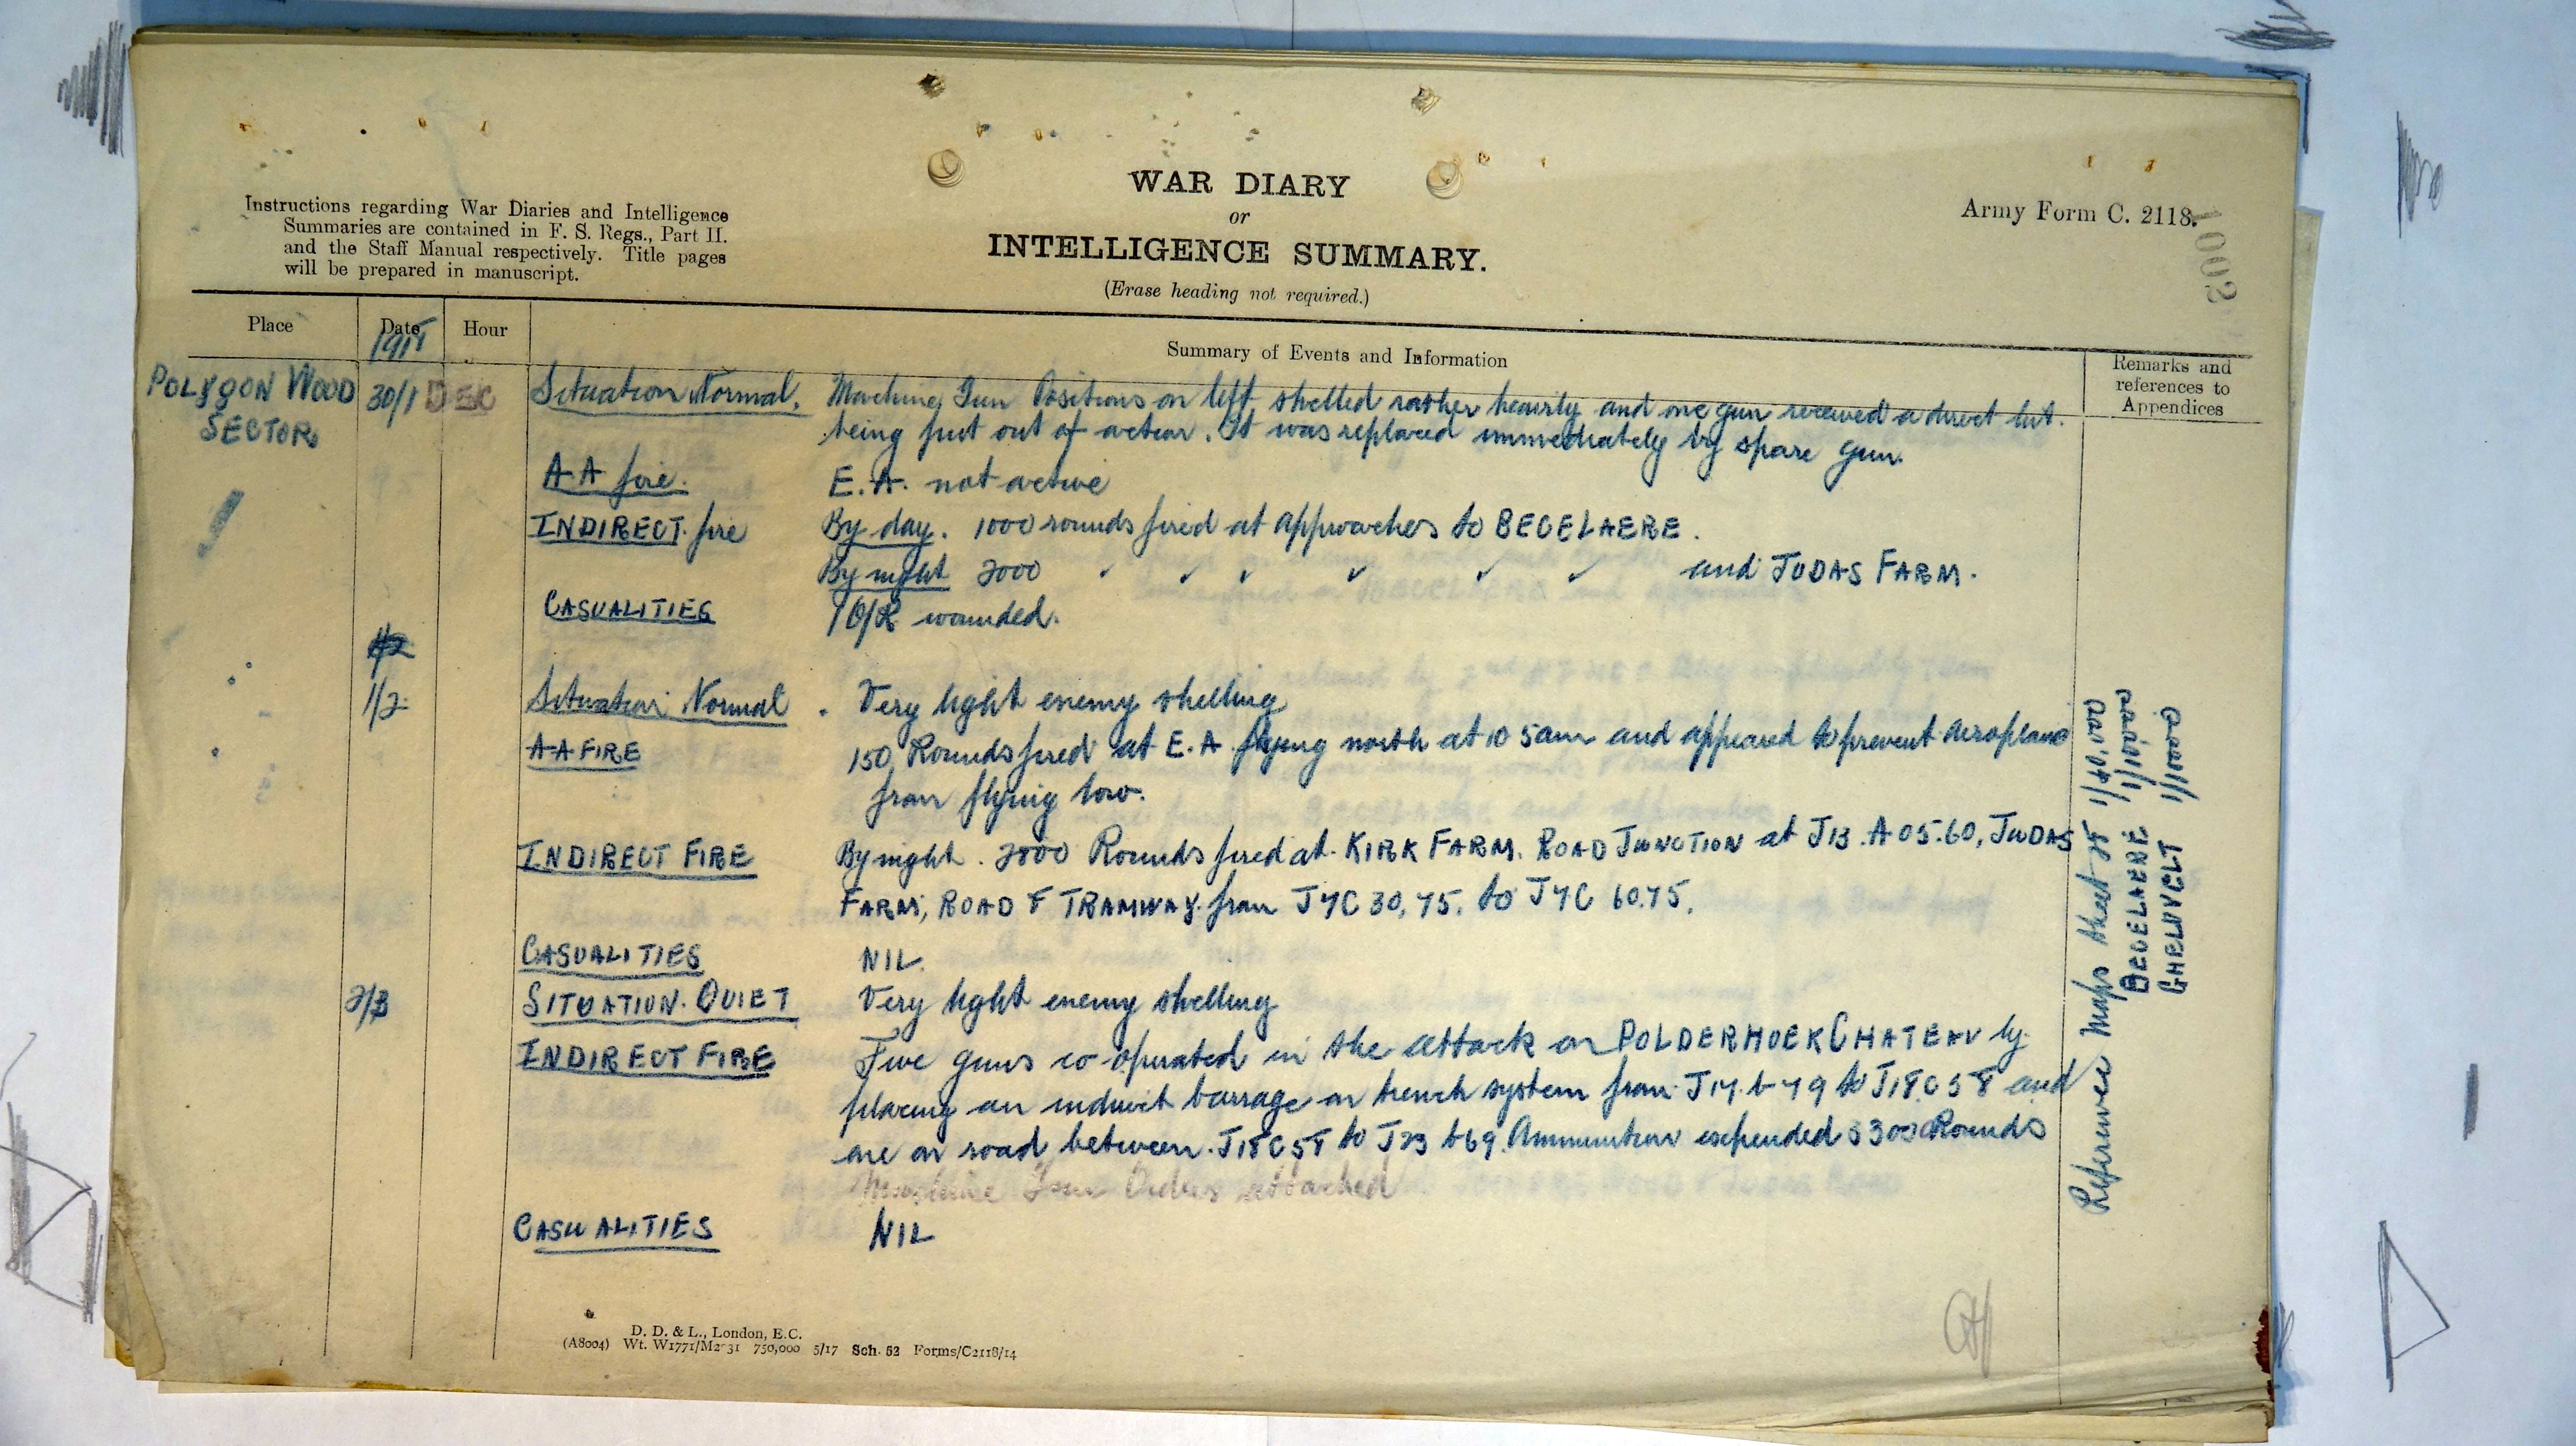 WAR DIARY
or
INTELLIGENCE SUMMARY.
(Erase heading not required.)
Army Form C. 2118.
Instructions regarding War Diaries and Intelligence
Summaries are contained in F. S. Regs., Part II.
and the Staff Manual respectively. Title pages
will be prepared in manuscript.
Place Date Hour Summary of Events and Information Remarks and
references to
Appendices
1917
POLYGON WOOD 30/1 DEC Situation Normal. Machine Gun Positions on left shelled rather heavily and one gun received a direct hit.
SECTOR being put out of action. It was replaced immediately by spare gun.
A A fire. E.A. not active
INDIRECT fire By day. 1000 rounds fired at approaches to BECELAERE.
By night 2000 " " " " " " and JUDAS FARM.
CASUALITIES 1 O/R wounded.
1/2 Situation Normal. Very light enemy shelling
A A FIRE 150 Rounds fired at E.A flying north at 10 5am and appeared to prevent aeroplane
from flying low.
INDIRECT FIRE By night. 2800 Rounds fired at KIRK FARM. ROAD JUNCTION at J13.A05.60, JUDAS
FARM, ROAD & TRAMWAY from J7C 30,75. to J7C 60.75.
CASUALITIES NIL.
2/3 SITUATION. QUIET Very light enemy shelling
INDIRECT FIRE Five guns co-operated in the attack on POLDERHOEK CHATEAU by
placing an indirect barrage on trench system from J17.b 79 to J18C58 and
one on road between J18C58 to J23 b69. Ammunition expended 3300 Rounds
Machine Gun Orders attached
CASUALITIES NIL
Reference Maps Sheet 28 1/40,000
BECELAERE 1/10,000
GHELUVELT 1/10000
D. D. & L., London, E.C.
(A8004) Wt. W1771/M2031 750,000 5/17 Sch. 52 Forms/C2118/14